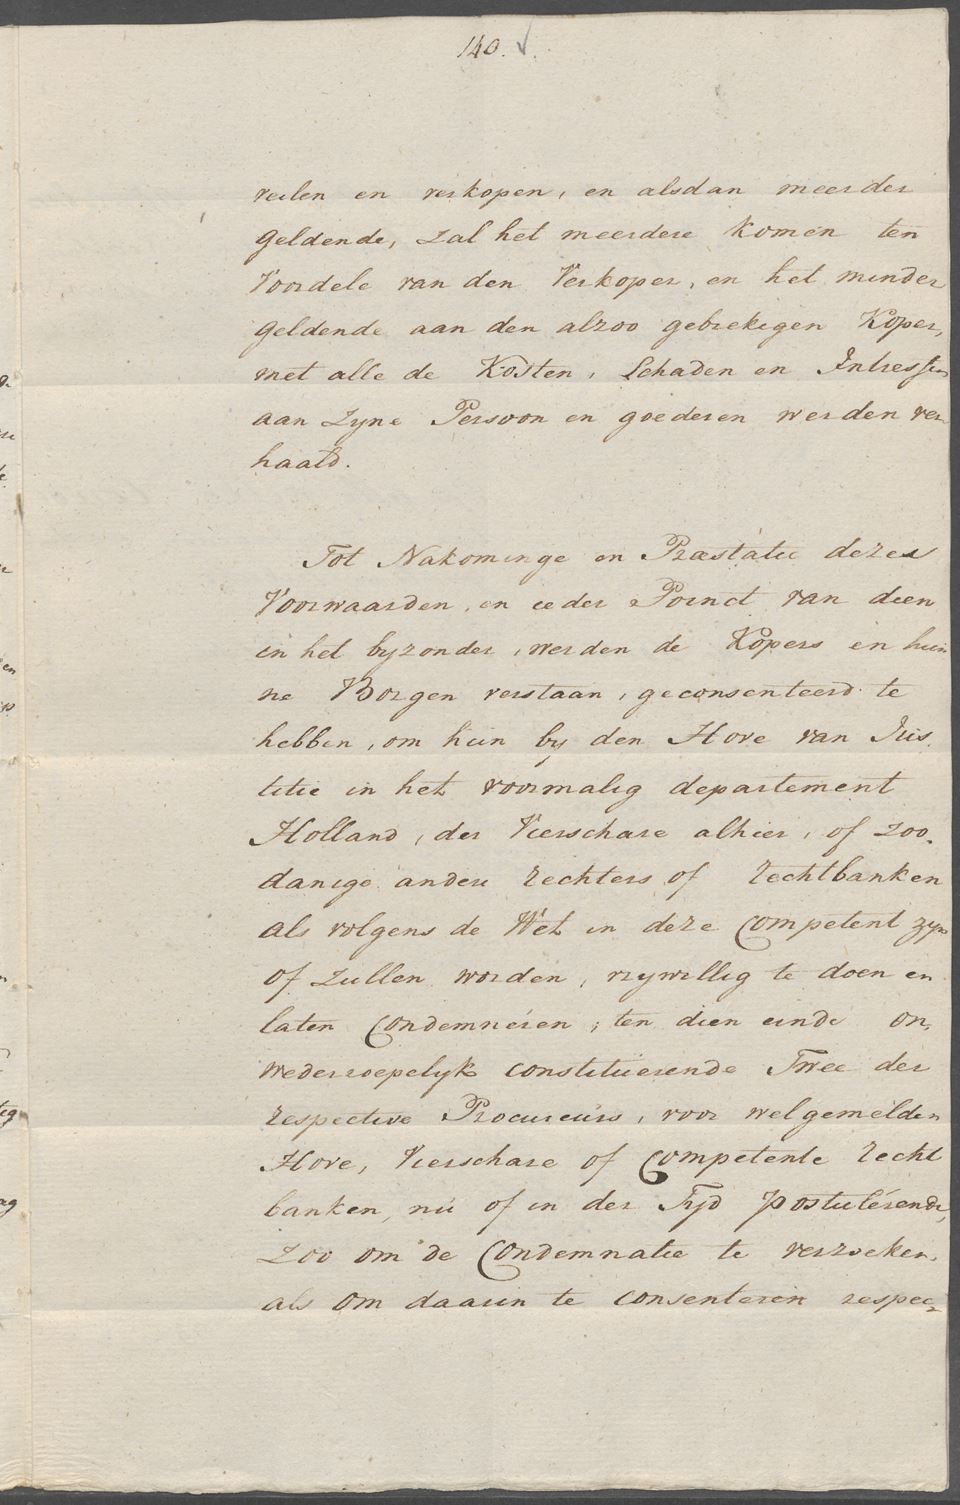 140.
veilen en verkopen, en alsdan meerder
geldende, zal het meerdere komen ten
Voordele van den Verkoper, en het minder
geldende aan den alzoo gebrekigen Koper,
met alle de Kosten, Schaden en Intressen
aan zyne Persoon en goederen werden ver
haald.
Tot Nakominge en Præstatie dezer
Voorwaarden, en ieder Poinct van dien
in het byzonder, werden de Kopers en hun
ne Borgen verstaan, geconsenteerd te
hebben, om hun by den Hove van Jus
titie in het voormalig departement
Holland, der Vierschare alhier, of zoo
danige andere rechters of rechtbanken
als volgens de Wet in deze Competent zyn
of zullen worden, vrywillig te doen en
laten Condemneren; ten dien einde on
wederroepelyk constituerende Twee der
respective Procureurs, voor welgemelden
Hove, Vierschare of Competente recht
banken, nu of in der Tyd Postulerende,
zoo om de Condemnatie te verzoeken,
als om daarin te consenteren respec